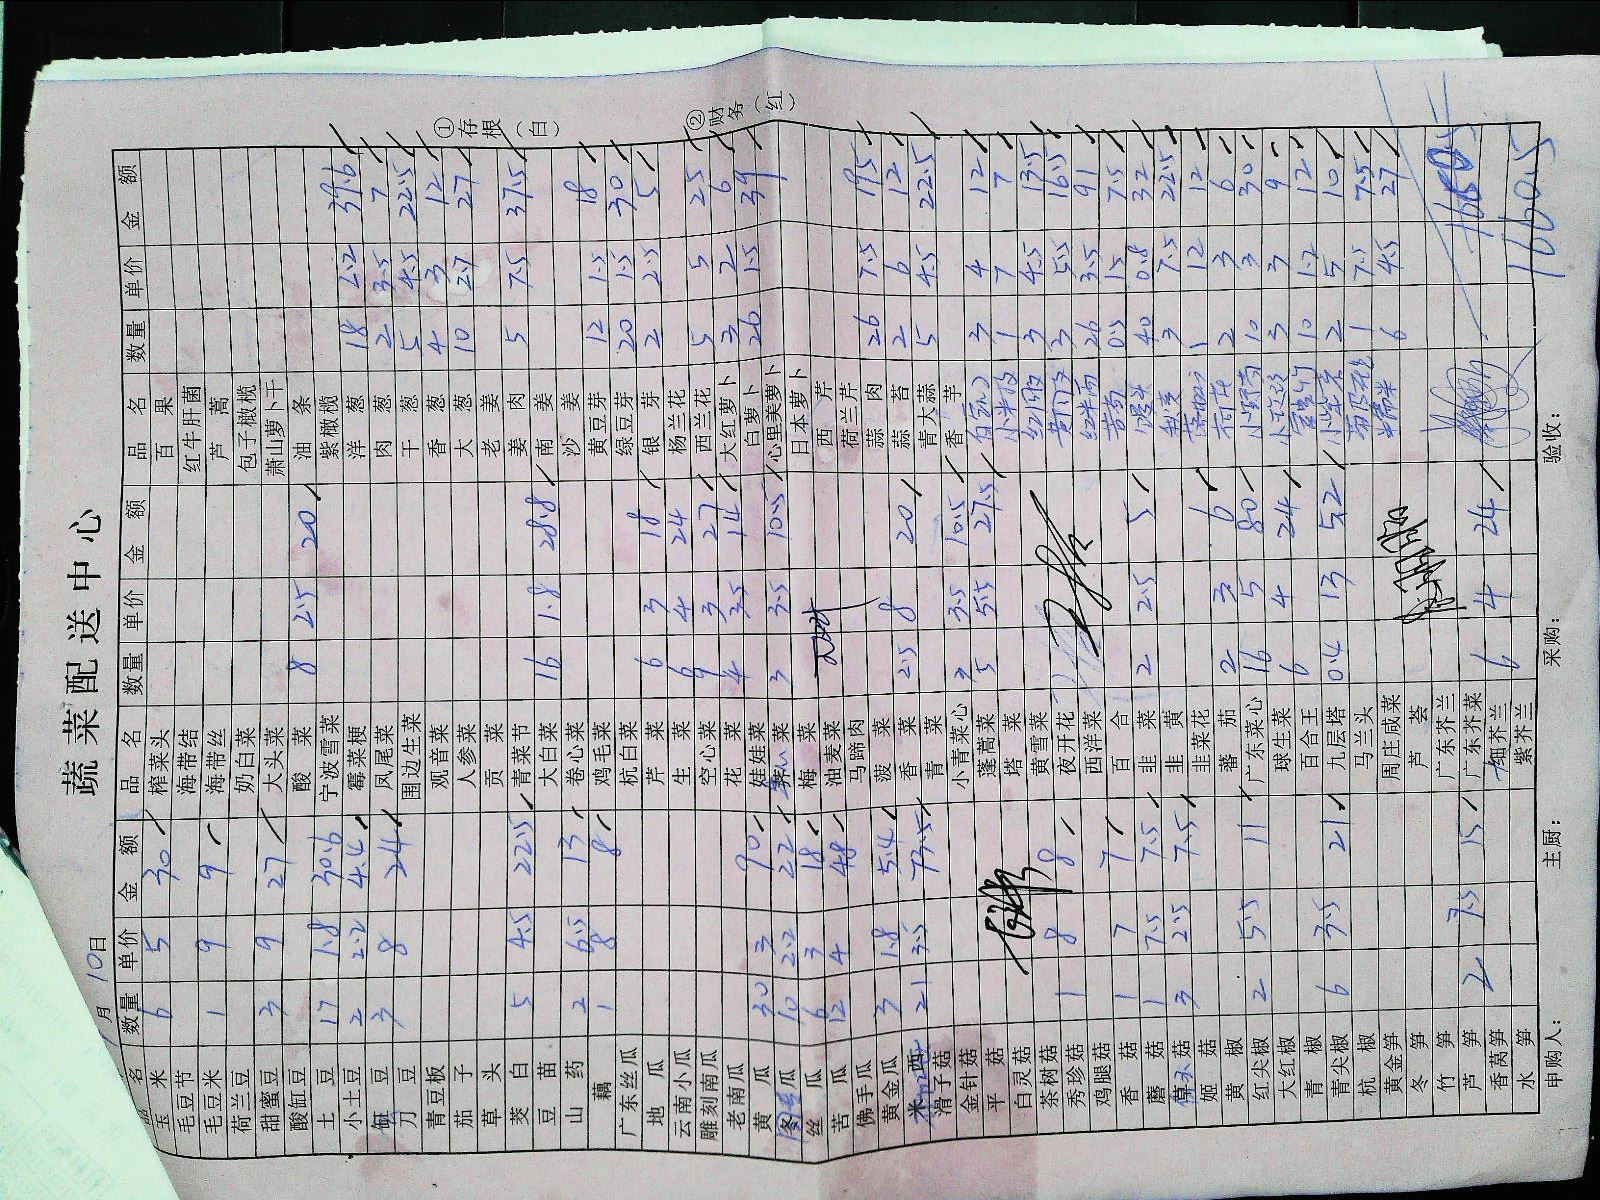 蔬菜配送中心
月 10日
品名 数量 单价 金额 品名 数量 单价 金额 品名 数量 单价 金额
玉米 6 5 30 榨菜头 百果
毛豆节 海带结 红牛肝菌
毛豆米 1 9 9 海带丝 芦蒿
荷兰豆 奶白菜 包子橄榄
甜蜜豆 3 9 27 大头菜 萧山萝卜干
酸缸豆 酸菜 8 2.5 20 油条
土豆 17 1.8 30.6 宁波雪菜 紫橄榄
小土豆 2 2.2 4.4 霉菜梗 洋葱 18 2.2 39.6
豆 3 8 24 凤尾菜 肉葱 2 3.5 7
刀豆 围边生菜 干葱 5 4.5 22.5
青豆板 观音菜 香葱 4 3 12
茄子 人参菜 大葱 10 2.7 27
草头 贡菜 老姜
茭白 5 4.5 22.5 青菜节 姜肉 5 7.5 37.5
豆苗 大白菜 16 1.8 28.8 南姜
山药 2 6.5 13 卷心菜 沙姜
藕 1 8 8 鸡毛菜 黄豆芽 12 1.5 18
广东丝瓜 杭白菜 绿豆芽 20 1.5 30
地瓜 芹菜 6 3 18 银芽 2 2.5 5
云南小瓜 生菜 6 4 24 杨兰花
雕刻南瓜 空心菜 9 3 27 西兰花 5 5 25
老南瓜 花菜 4 3.5 14 大红萝卜 3 2 6
黄瓜 30 3 90 娃娃菜 白萝卜 26 1.5 39
瓜 10 2.2 22 菜 3 3.5 10.5 心里美萝卜
丝瓜 6 3 18 梅菜 日本萝卜
苦瓜 12 4 48 油麦菜 西芹
佛手瓜 马蹄肉 荷兰芹
黄金瓜 3 1.8 5.4 菠菜 蒜肉 26 7.5 19.5
21 3.5 73.5 香菜 2.5 8 20 蒜苔 2 6 12
滑子菇 青菜 青大蒜 5 4.5 22.5
金针菇 小青菜心 3 3.5 10.5 香芋
平菇 蓬蒿菜 5 5.5 27.5 3 4 12
白灵菇 塔菜 1 7 7
茶树菇 黄雪菜 3 4.5 13.5
秀珍菇 1 8 8 夜开花 3 5.5 16.5
鸡腿菇 西洋菜 26 3.5 91
香菇 1 7 7 百合 0.5 15 7.5
蘑菇 1 7.5 7.5 韭菜 2 2.5 5 40 0.8 32
草菇 3 2.5 7.5 韭黄 3 7.5 22.5
姬菇 韭菜花 1 12 12
黄椒 蕃茄 2 3 6 2 3 6
红尖椒 2 5.5 11 广东菜心 16 5 80 10 3 30
大红椒 球生菜 6 4 24 3 3 9
青椒 百合王 10 1.2 12
青尖椒 6 3.5 21 九层塔 0.4 13 5.2 2 5 10
杭椒 马兰头 1 7.5 7.5
黄金笋 周庄咸菜 6 4.5 27
冬笋 芦荟
竹笋 广东芥兰
芦笋 2 7.5 15 广东芥菜
香莴笋 细芥兰 6 4 24
水笋 紫芥兰
1660.5
申购人： 主厨： 采购： 验收：
①存根（白）
②财务（红）